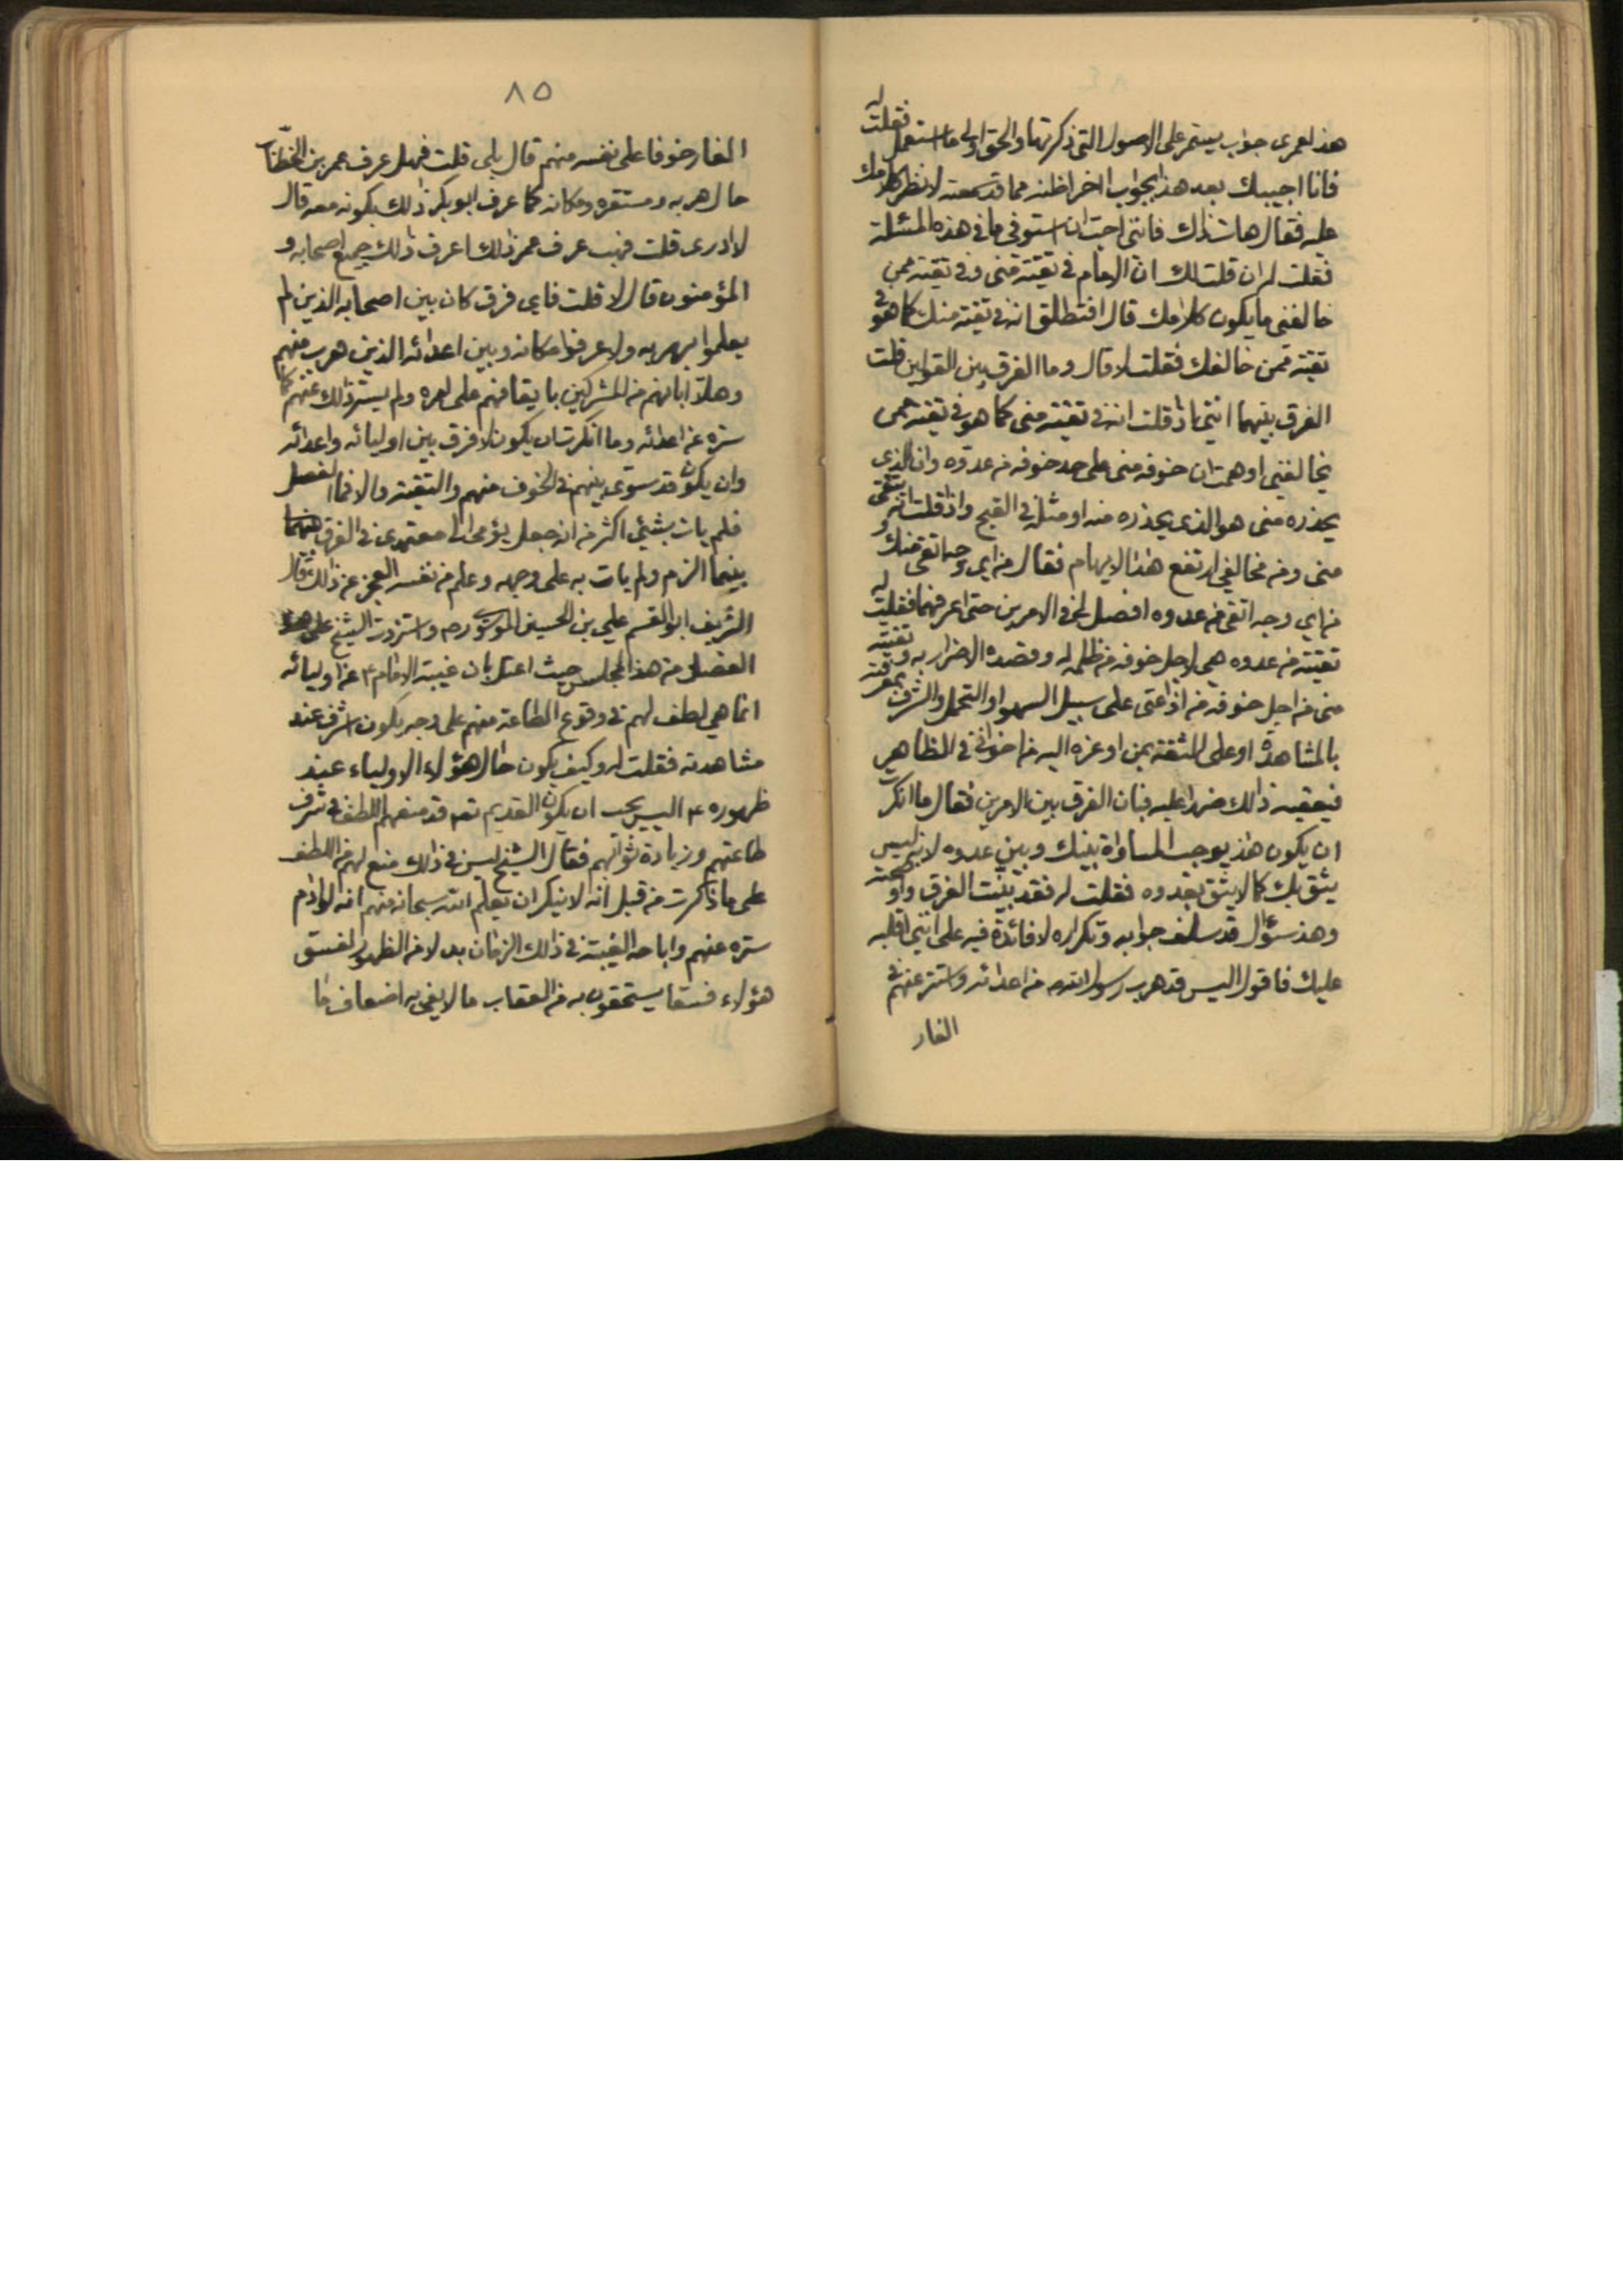 هذا لعمرى جواب يستمر على الاصول التى ذكرتها والحق اولى ما استعمل فقلت له
فانا اجيبك بعد هذا بجواب اخر اظنه مما قد سمعته لانظر كلامك
عليه فقال هات ذلك فانني احب ان استوفى ما فى هذه المسئلة
فقلت له ان قلت لك ان الامام فى تقية منى وفى تقية ممن
خالفنى ما يكون كلامك قال افتطلق انه فى تقية منك كما هو فى
تقية ممن خالفك فقلت لا قال وما الفرق بين القولين قلت
الفرق بينهما اننى اذا قلت انه فى تقية منى كما هو فى تقية ممن
يخالفنى اوهمت ان خوفه منى على حد خوفه من عدوه وان الذى
يحذره منى هو الذى يحذره منه او مثله فى القبح واذا قلت انه يتقى
منى ومن مخالفى ارتفع هذا الايهام فقال من اى وجه اتقى منك و
من اى وجه اتقى من عدوه افصل لى الامرين حتى اعرفهما فقلت له
تقيته من عدوه هى لاجل خوفه من ظلمه له وقصده الاضرار به وتقيته
منى من اجل خوفه من اذاعتى على سبيل السهو او التجمل والشرف بمعرفته
بالمشاهدة او على الثقة بمن اوعزه اليه من اخوانى فى الظاهر
فيعقبه ذلك ضررا عليه فبان الفرق بين الامرين فقال ما انكرت
ان يكون هذا يوجب المساواة بينك وبين عدوه لانه ليس
يثق بك كما لا يثق بعدوه فقلت له فقد بينت الفرق واوضحته
وهذا سؤال قد سلف جوابه وتكراره لا فائدة فيه على اننى اقلبه
عليك فاقول اليس قد هرب رسول الله ص من اعدائه واستتر عنهم فى
الغار
٨٥
الغار خوفا على نفسه منهم قال بلى قلت فهل عرف عمر بن الخطاب
حال هربه ومستقره ومكانه كما عرف ابو بكر ذلك بكونه معه قال
لا ادرى قلت فهب عرف عمر ذلك اعرف ذلك جميع اصحابه و
المؤمنون قال لا قلت فاى فرق كان بين اصحابه الذين لم
يعلموا بهربه ولا عرفوا مكانه وبين اعدائه الذين هرب منهم
وهلا ابانهم من المشركين بايقافهم على امره ولم يستر ذلك عنهم كما
ستره عن اعدائه وما انكرت ان يكون لا فرق بين اوليائه واعدائه
وان يكون قد سوى بينهم فى الخوف منهم والتقية والا فما الفصل
فلم يات بشيئ اكثر من انه جعل يؤمى الى معتمدى فى الفرق
بينما الزم ولم يات به على وجهه وعلم من نفسه العجز عن ذلك قال
الشريف ابو القسم على بن الحسين الموسوى رحم واستزدت الشيخ على هذا
الفصل من هذا المجلس حيث اعتل بان غيبة الامام ع عن اوليائه
انما هى لطف لهم فى وقوع الطاعة منهم على وجه يكون اشرف عند
مشاهدته فقلت له وكيف يكون حال هؤلاء الاولياء عند
ظهوره ع اليس يجب ان يكون القديم تع قد منعهم اللطف فى شرف
طاعتهم وزيادة ثوابهم فقال الشيخ ليس فى ذلك منع لهم من اللطف
على ما ذكرت من قبل انه لا ينكر ان يعلم الله سبحانه منهم انه لو ادام
ستره عنهم واباحه الغيبة فى ذلك الزمان بدلا من الظهور لفسق
هؤلاء فسقا يستحقون به من العقاب ما لا يفى به اضعاف ما